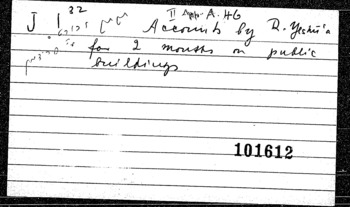 J 1³² II App. A. 46
Accounts by R. Yeshu'a
for 2 months on public
buildings
101612